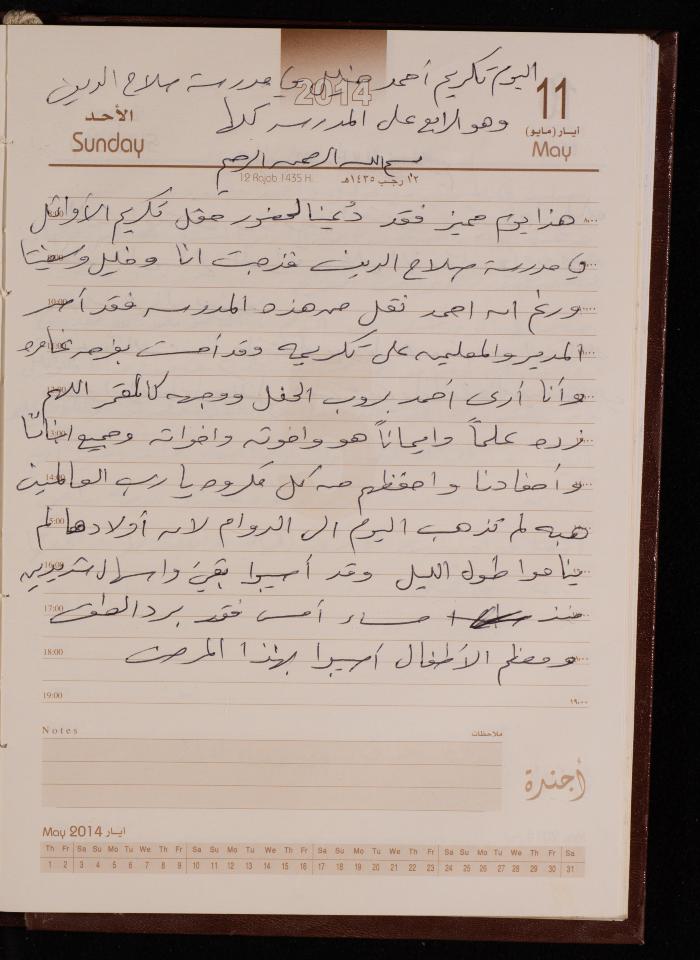 اليوم تكريم أحمد خليل في مدرسة صلاح الدين
2014
11
الأحد
أيار (مايو)
Sunday
May
وهو الرابع على المدرسة كلها
بسم الله الرحمن الرحيم
12 Rajab 1435 H. ١٢ رجب ١٤٣٥هـ
هذا يوم مميز فقد دُعينا لحضور حفل تكريم الأوائل
في مدرسة صلاح الدين فذهبت انا وخليل وسفيتا
ورغم انه احمد نقل من هذه المدرسه فقد أصر
المدير والمعلميه على تكريمه وقد أحسست بفرحه غامره
وأنا أرى أحمد بروب الحفل ووجهه كالقمر اللهم
زده علماً وايماناً هو واخوته واخواته وجميع ابنائنا
وأحفادنا واحفظهم من كل مكروه يا رب العالمين
هبه لم تذهب اليوم الى الدوام لانه أولادها لم
يناموا طول الليل وقد أصيبوا بقيء واسهال شديدين
منذ مساء أمس فقد برد الطقس
ومعظم الأطفال أصيبوا بهذا المرض
10:00
17:00
18:00
19:00 ١٩:٠٠
Notes ملاحظات
أجندة
May 2014 أيار
Th Fr Sa Su Mo Tu We Th Fr Sa Su Mo Tu We Th Fr Sa Su Mo Tu We Th Fr Sa Su Mo Tu We Th Fr Sa
1 2 3 4 5 6 7 8 9 10 11 12 13 14 15 16 17 18 19 20 21 22 23 24 25 26 27 28 29 30 31